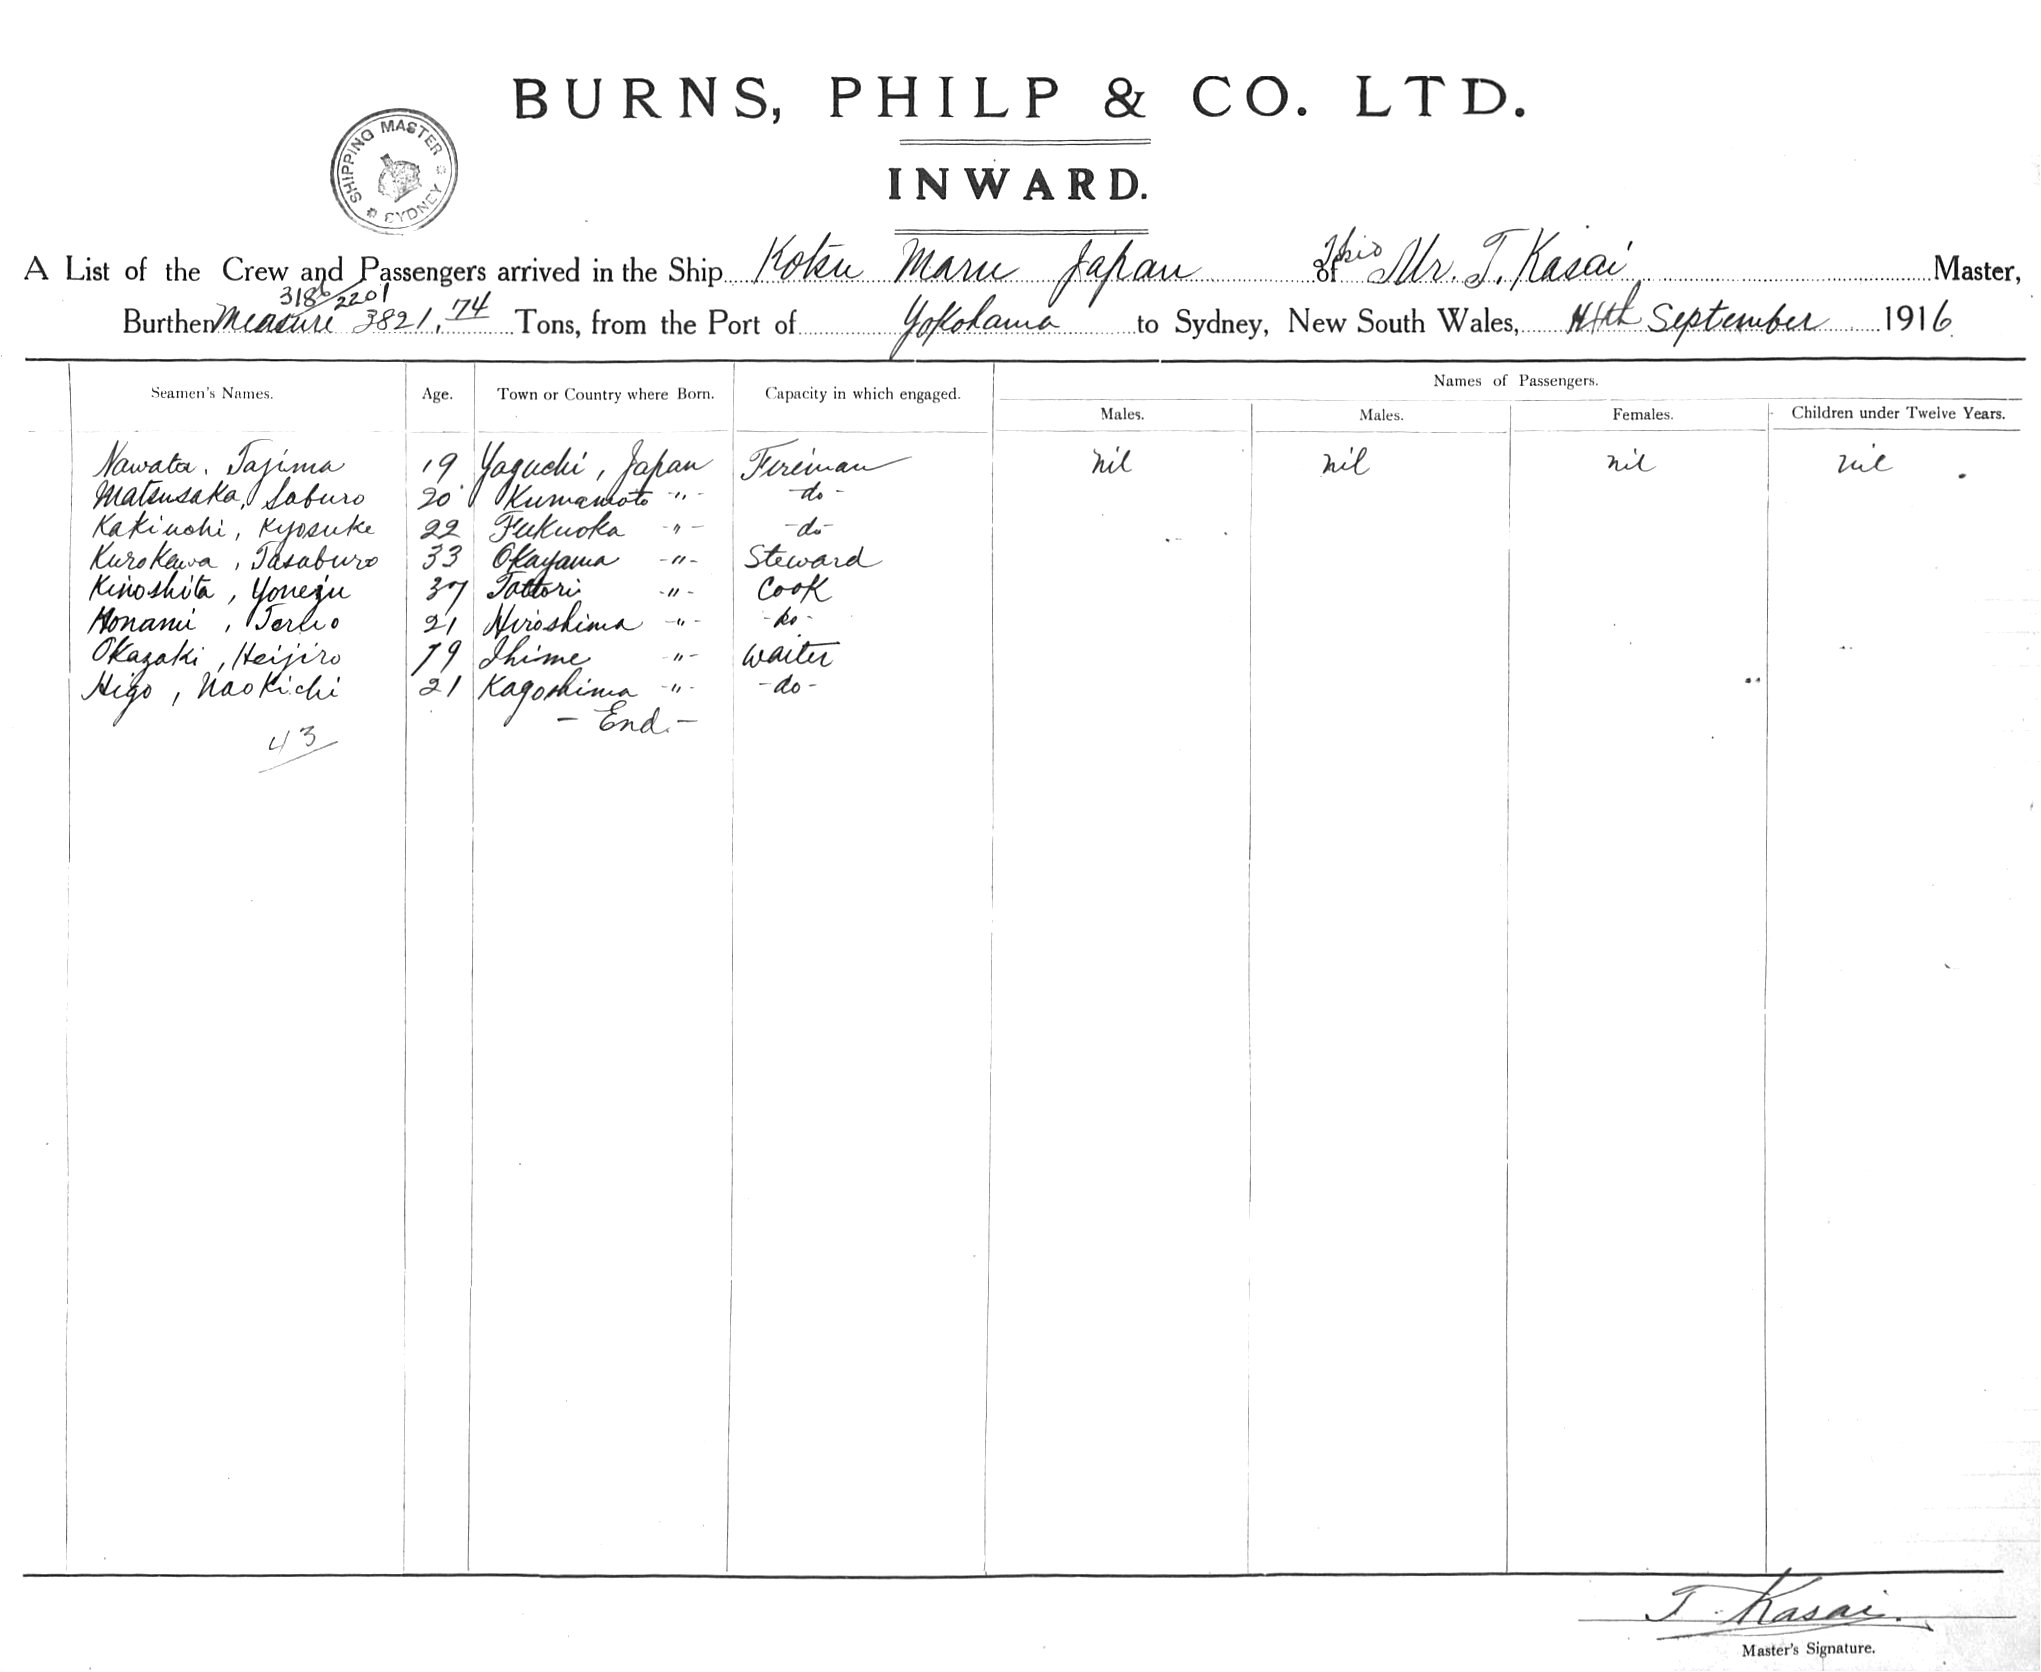 BURNS, PHILP & CO. LTD.
SHIPPING MASTER SYDNEY
INWARD.
A List of the Crew and Passengers arrived in the Ship Kotsu Maru Japan of Mr. T. Kasai Master,
3186 2201
Burthen Measure 3821.74 Tons, from the Port of Yokohama to Sydney, New South Wales, September 1916
Seamen's Names. Age. Town or Country where Born. Capacity in which engaged. Names of Passengers.
Males. Males. Females. Children under Twelve Years.
Nawata, Tajima 19 Yaguchi, Japan Fireman nil nil nil nil
Matsusaka, Saburo 20 Kumamoto -"- -do-
Kakiuchi, Kyosuke 22 Fukuoka -"- -do-
Kurokawa, Tasaburo 33 Okayama -"- Steward
Kinoshita, Yoneju 37 Tottori -"- Cook
Honami, 21 Hiroshima -"- -do-
Okazaki, Heijiro 19 Ihime -"- Waiter
Higo, Naokichi 21 Kagoshima -"- -do-
- End. -
43
T. Kasai.
Master's Signature.